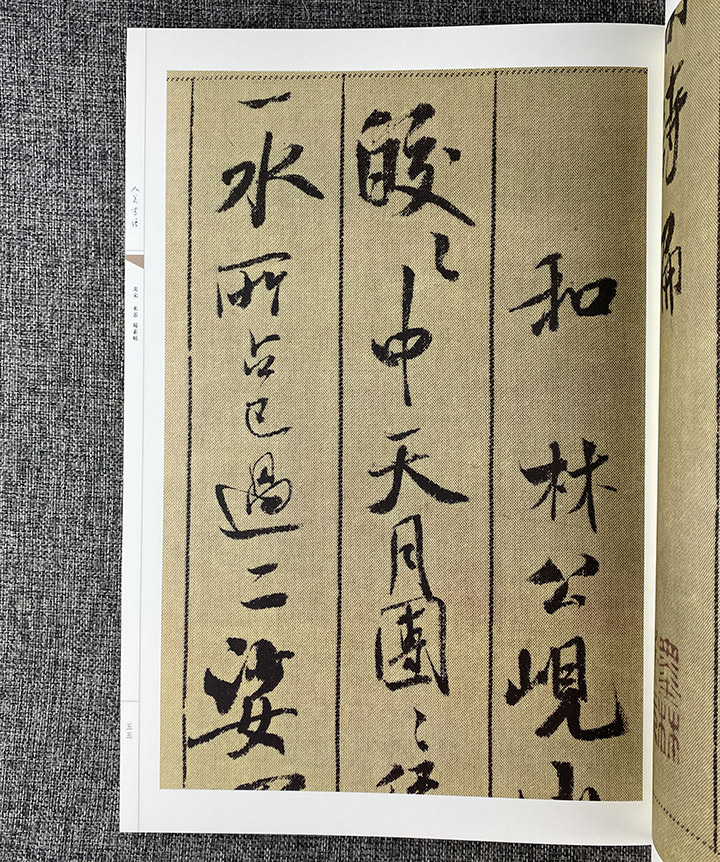 和林公峴山
皎〻中天月團〻徑
一水所占已過二娑
人美書譜
北宋 米芾 蜀素帖
五五